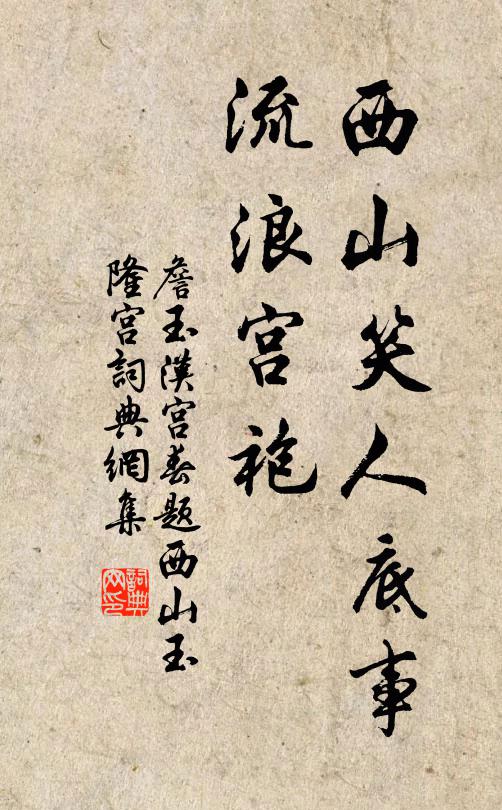 西山笑人底事
流浪宫袍
詹玉漢宫春题西山玉
隆宫詞典網集
詞典
网印